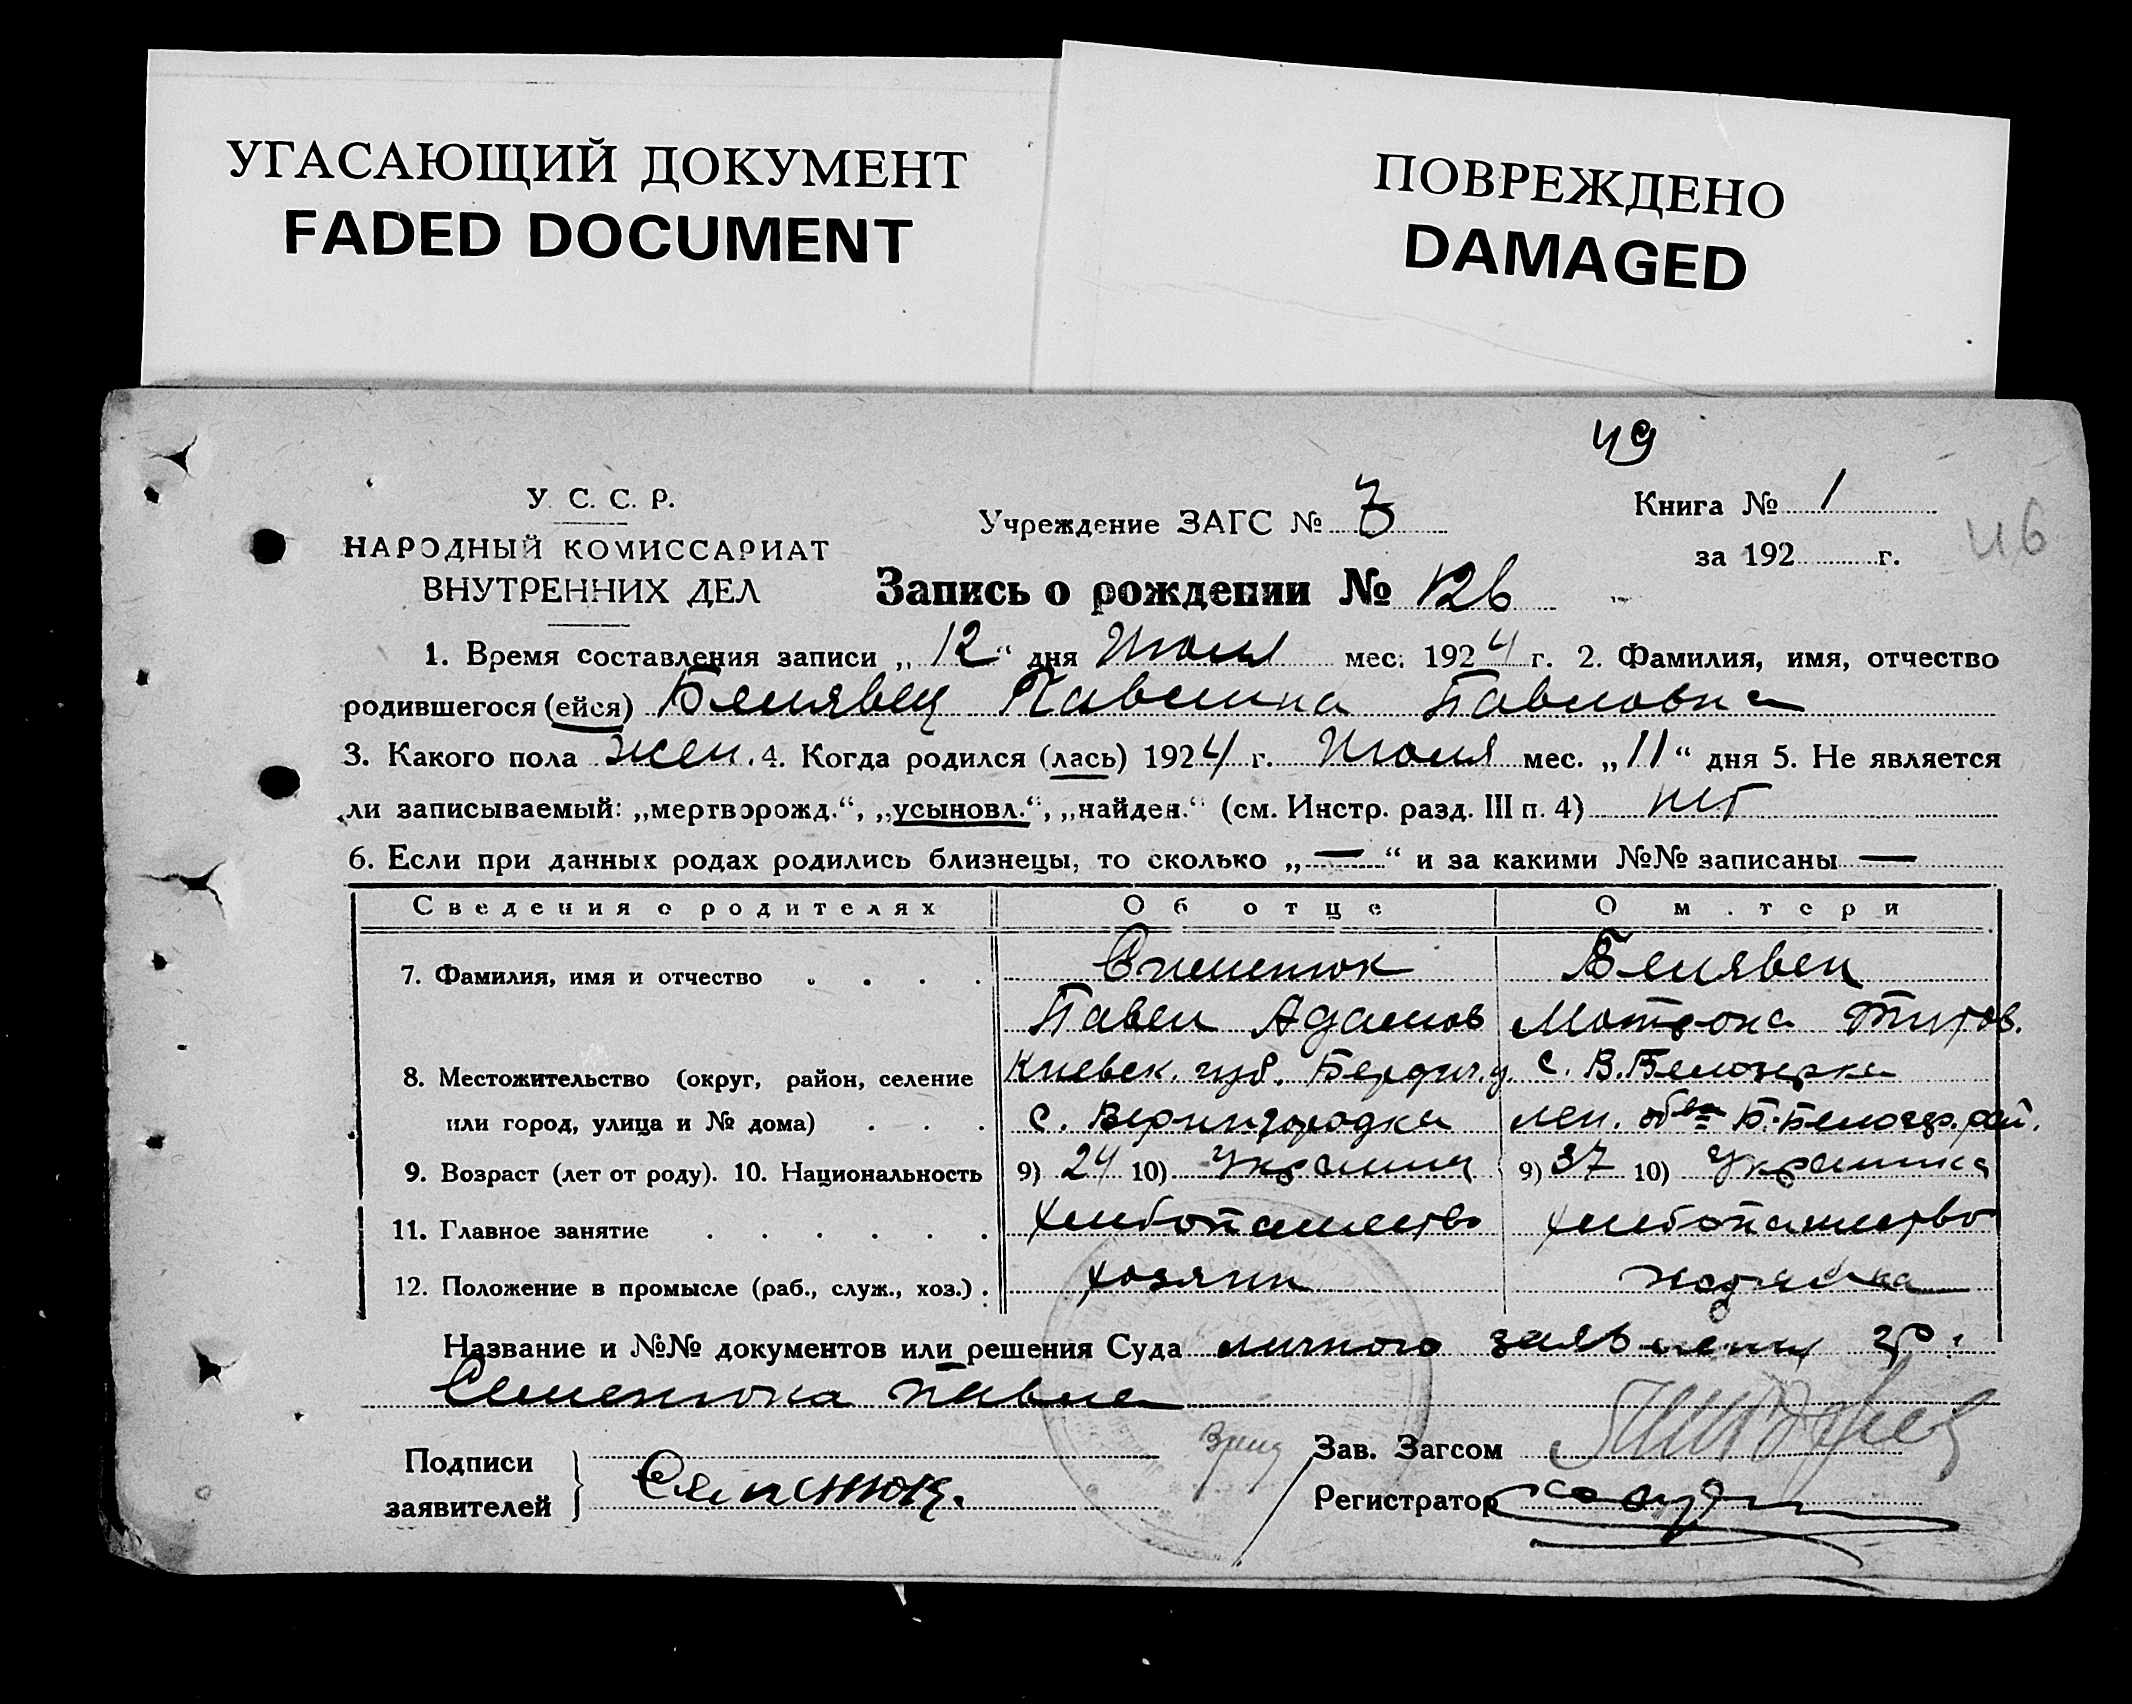 УГАСАЮЩИЙ ДОКУМЕНТ
FADED DOCUMENT
ПОВРЕЖДЕНО
DAMAGED
49
У. С. С. Р.
НАРОДНЫЙ КОМИССАРИАТ
ВНУТРЕННИХ ДЕЛ
Учреждение ЗАГС № 3
Книга № 1
за 192 г.
46
Запись о рождении № 126
1. Время составления записи „12“ дня Июля мес. 1924 г. 2. Фамилия, имя, отчество
родившегося (ейся) Белявец Павлина Павловна
3. Какого пола жен. 4. Когда родился (лась) 1924 г. Июля мес. „11“ дня 5. Не является
ли записываемый: „мертворожд.“, „усыновл.“, „найден.“ (см. Инстр. разд. III п. 4) нет
6. Если при данных родах родились близнецы, то сколько „—“ и за какими №№ записаны —
Сведения о родителях Об отце О матери
7. Фамилия, имя и отчество Белявец
Павел Адамов Мотрона Титов.
8. Местожительство (округ, район, селение Киевск. губ. Бердич. у. с. В. Белозерка
или город, улица и № дома) с. Вернигородка
9. Возраст (лет от роду). 10. Национальность 9) 24 10) Украинец 9) 37 10) Украинка
11. Главное занятие хлебопашество хлебопашество
12. Положение в промысле (раб., служ., хоз.) хозяин хозяйка
Название и №№ документов или решения Суда личного заявления гр.
Семенюка Павла
Подписи
заявителей
Семенюк.
Врид
Зав. Загсом
Регистратор